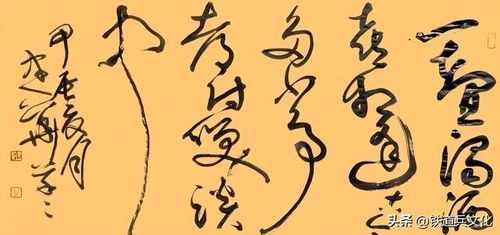 一壺濁酒
喜相逢古今
多少事
都付笑談
中
甲辰夏月
头条 @铁道兵文化